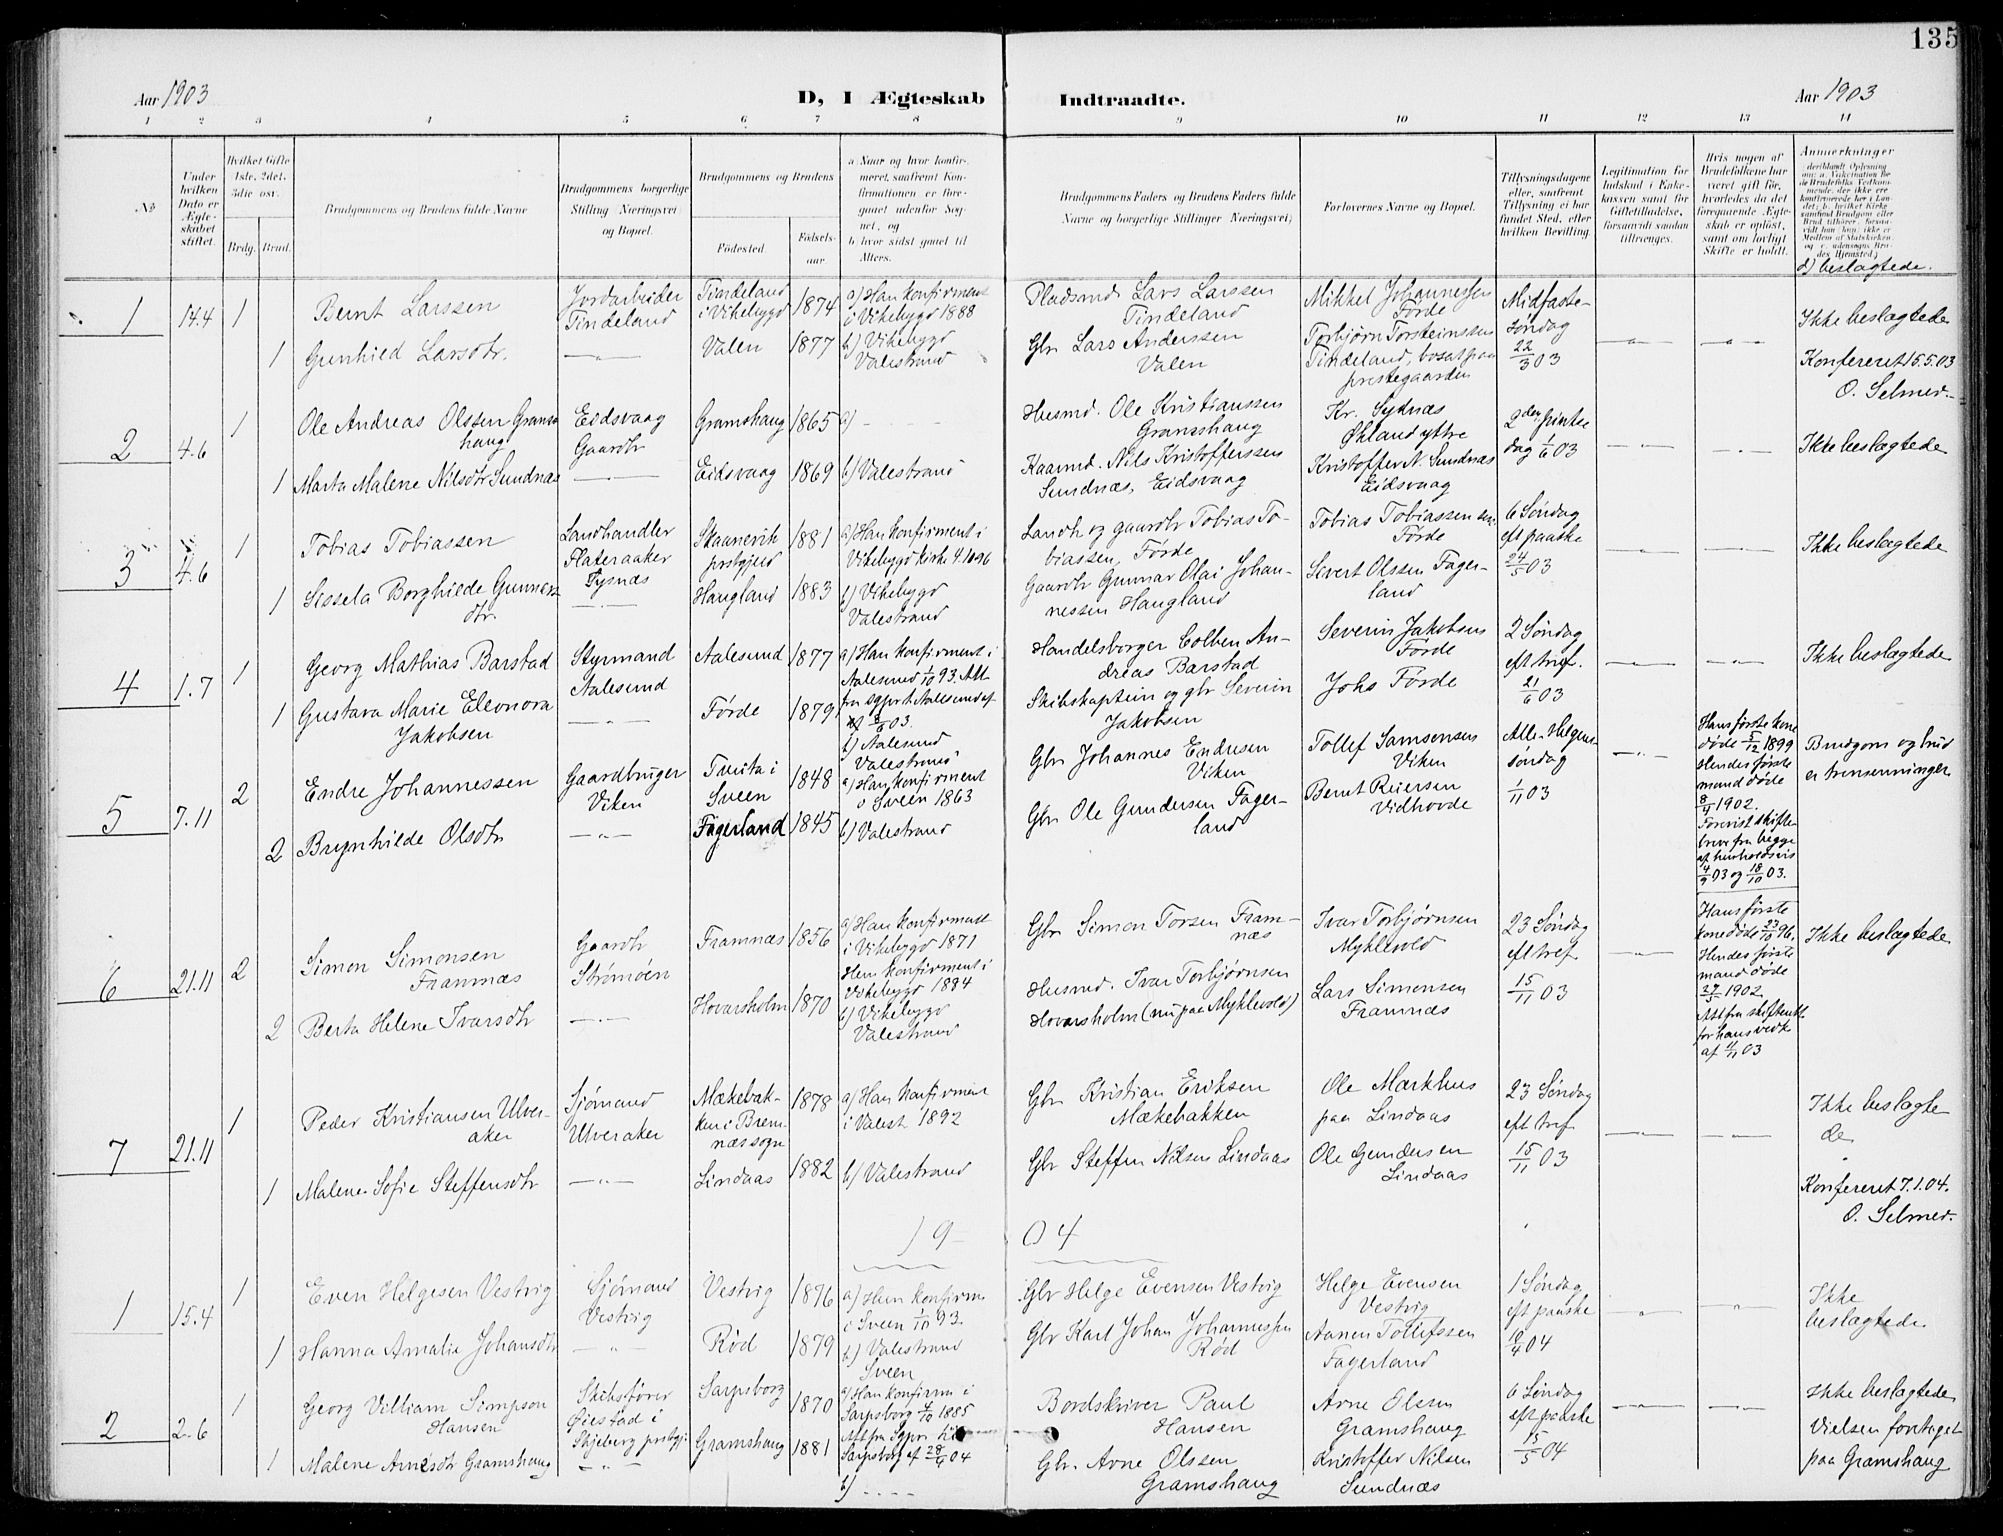 135
Aar 1903
D, I Ægteskab Indtraadte.
Aar 1903
1 2 3 4 5 6 7 8 9 10 11 12 13 14
No
Under hvilken Dato er Ægteskabet stiftet.
Hvilket Gifte 1ste, 2det, 3die osv.
Brdg. Brud.
Brudgommens og Brudens fulde Navne
Brudgommens borgerlige Stilling Næringsvei og Bopæl.
Brudgommens og Brudens
Fødested.
Fødselsaar.
a) Naar og hvor konfirmeret, saafremt Konfirmationen er foregaaet udenfor Sognet, og
b) hvor sidst gaaet til Alters.
Brudgommens Faders og Brudens Faders fulde Navne og borgerlige Stillinger Næringsvei)
Forlovernes Navne og Bopæl.
Tillysningsdagene eller, saafremt Tillysning ei har fundet Sted, efter hvilken Bevilling.
Legitimation for Indskud i Enkekassen samt for Giftetilladelse, forsaavidt saadan tiltrænges.
Hvis nogen af Brudefolkene har været gift før, hvorledes da det foregaaende Ægteskab er opløst, samt om lovligt Skifte er holdt.
Anmerkninger
d) beslægtede.
1
14.4
1
Bernt Larssen
Jordarbeider
Tindeland
Tindeland
i Vikebygd
1874
a) Han konfirment
i Vikebygd 1888
Pladsmd Lars Larssen
Tindeland
Mikkel Johannessen
Førde
Midfaste-
søndag
22/3 03
Ikke beslægtede
1
Gunhild Larsdtr.
— " —
Valen
1877
b) Vikebygd
Valestrand
Gbr Lars Anderssen
Valen
Torbjørn Torsteinssen
Tindeland, bosat paa
prestegaarden
— " —
— " —
Konfereret 15.5.03
O. Selmer.
2
4.6
1
Ole Andreas Olssen Grams-
haug
Eidsvaag
Gaardbr
Gramshaug
1865
a) - - - -
Husmd. Ole Kristianssen
Gramshaug
Kr. Sydnæs
Økland ytre
2den pintse
dag 1/6 03
— " —
— " —
Ikke beslægtede
1
Marta Malene Nilsdtr Sundnæs
— " —
Eidsvaag
1869
b) Valestrand
Kaarmd. Nils Kristofferssen
Sundnæs, Eidsvaag
Kristoffer N. Sundnæs
Eidsvaag
3
4.6
1
Tobias Tobiassen
Landhandler
Flateraaker
Tysnæs
Skaanevik
prstgjeld
1881
a) Han konfirment i
Vikebygd kirke 4.10 96
Landh og gaardbr Tobias To-
biassen, Førde
Tobias Tobiassen sen.
Førde
6 Søndag
eft paaske
24/5 03
— " —
— " —
Ikke beslægtede
1
Sissela Borghilde Gunnars-
dtr.
— " —
Haugland
1883
b) Vikebygd
Valestrand
Gaardbr Gunnar Olai Johan-
nessen Haugland
Sivert Olssen Fager-
land
4
1.7
1
Georg Mathias Barstad
Styrmand
Aalesund
Aalesund
1877
a) Han konfirment i
Aalesund 1/10 93. Att
fra sgprt Aalesund af
03.
Handelsborger Colben An-
dreas Barstad
Severin Jakobsen
Førde
2 Søndag
eft tref.
21/6 03
— " —
— " —
Ikke beslægtede
1
Gustava Marie Eleonora
Jakobsen
— " —
Førde
1879
b) Aalesund
Valestrand
Skibskaptein og gbr Severin
Jakobsen
Johs Førde
5
7.11
2
Endre Johannessen
Gaardbruger
Viken
Tveita i
Sveen
1848
a) Han konfirment
i Sveen 1863
Gbr Johannes Endresen
Viken
Tollef Samsonsen
Viken
Alle-Helgens-
søndag
1/11 03
— " —
Hans første kone
døde 5/12 1899
Hendes første
mand døde
8/4 1902.
Forevist skifte-
brev fra begge
af husholdsvis
4/9 03 og 18/10 03.
Brudgom og brud
er tremenninger
2
Brynhilde Olsdtr
— " —
Fagerland
1845
b) Valestrand
Gbr Ole Gundersen Fager-
land
Bernt Reiersen
Vidhovde
6
21.11
2
Simon Simonsen
Framnæs
Gaardbr
Strømøen
Framnæs
1856
a) Han konfirment
i Vikebygd 1871
Gbr Simon Torsen Fram-
næs
Ivar Torbjørnsen
Myklevold
23 Søndag
eft tref
15/11 03
— " —
Hans første
kone døde 23/10 96.
Hendes første
mand døde
27/5 1902.
Att fra skifteretten
for hans vedk
af 9/11 03
Ikke beslægtede
2
Berta Helene Ivarsdtr
— " —
Hovarsholm
1870
Hun konfirment i
Vikebygd 1884
b) Vikebygd
Valestrand
Husmd. Ivar Torbjørnsen
Hovarsholm (nu paa Myklevold)
Lars Simonsen
Framnæs
7
21.11
1
Peder Kristiansen Ulver-
aker
Sjømand
Ulveraker
Mækebak-
ken i Brem-
næs sogn
1878
a) Han konfirment
i Valest 1892
Gbr Kristian Eriksen
Mækebakken
Ole Markhus
paa Lindaas
23 Søndag
eft tref
15/11 03
— " —
— " —
Ikke beslægte
de
1
Malene Sofie Steffensdtr
— " —
Lindaas
1882
b) Valestrand
Gbr Steffen Nilsen Lindaas
Ole Gundersen
Lindaas
Konfereret 7.1.04.
O. Selmer.
19 04
1
15.4
1
Even Helgesen Vestvig
Sjømand
Vestvig
Vestvig
1876
a) Han konfirm
i Sveen 1/10 93.
Gbr Helge Evensen Vestvig
Helge Evensen
Vestvig
1 Søndag
eft paaske
10/4 04
— " —
— " —
Ikke
beslægtede
1
Hanna Amalie Johansdtr
— " —
Rød
1879
b) Valestrand
Sveen
Gbr Karl Johan Johannessen
Rød
Aanen Tollefssen
Fagerland
2
2.6
1
Georg Villiam Simpson
Hansen
Skibsfører
Øiestad i
Skjeberg prstgj.
Sarpsborg
1870
a) Han konfirm i
Sarpsborg 4/10 1885
Att fra Sgpr til
Sarpsborg af 28/4 04
Bordskriver Paul
Hansen
Arne Olsen
Gramshaug
6 Søndag
eft paaske
15/5 04
— " —
— " —
Ikke beslægtede
Vielsen foretaget
paa Gramshaug
1
Malene Arnesdtr Gramshaug
— " —
Gramshaug
1881
b) - - - -
Gbr. Arne Olssen
Gramshaug
Kristoffer Nilsen
Sundnæs